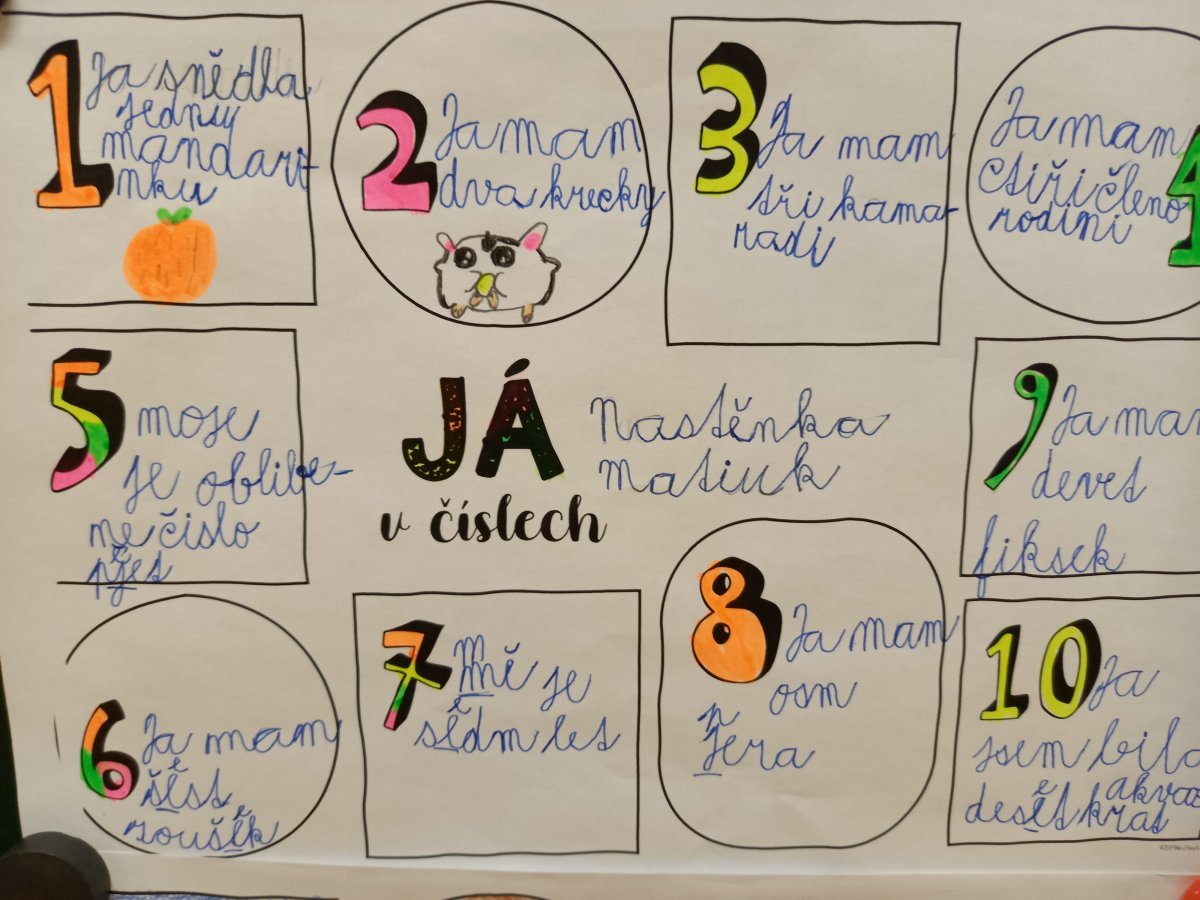 1
Ja snědla
jednu
mandari-
nku
2
Ja mam
dva krecky
3
Ja mam
tři kama-
radi
4
Ja mam
čtiři členo
rodini
5
moje
je oblibe-
ne čislo
pjet
JÁ
v číslech
Nastěnka
matiuk
9
Ja mam
devet
fiksek
6
Ja mam
šest
roušek
7
Mně je
sedm let
8
Ja mam
osm
pera
10
Ja
jsem bila
akva
deset krat